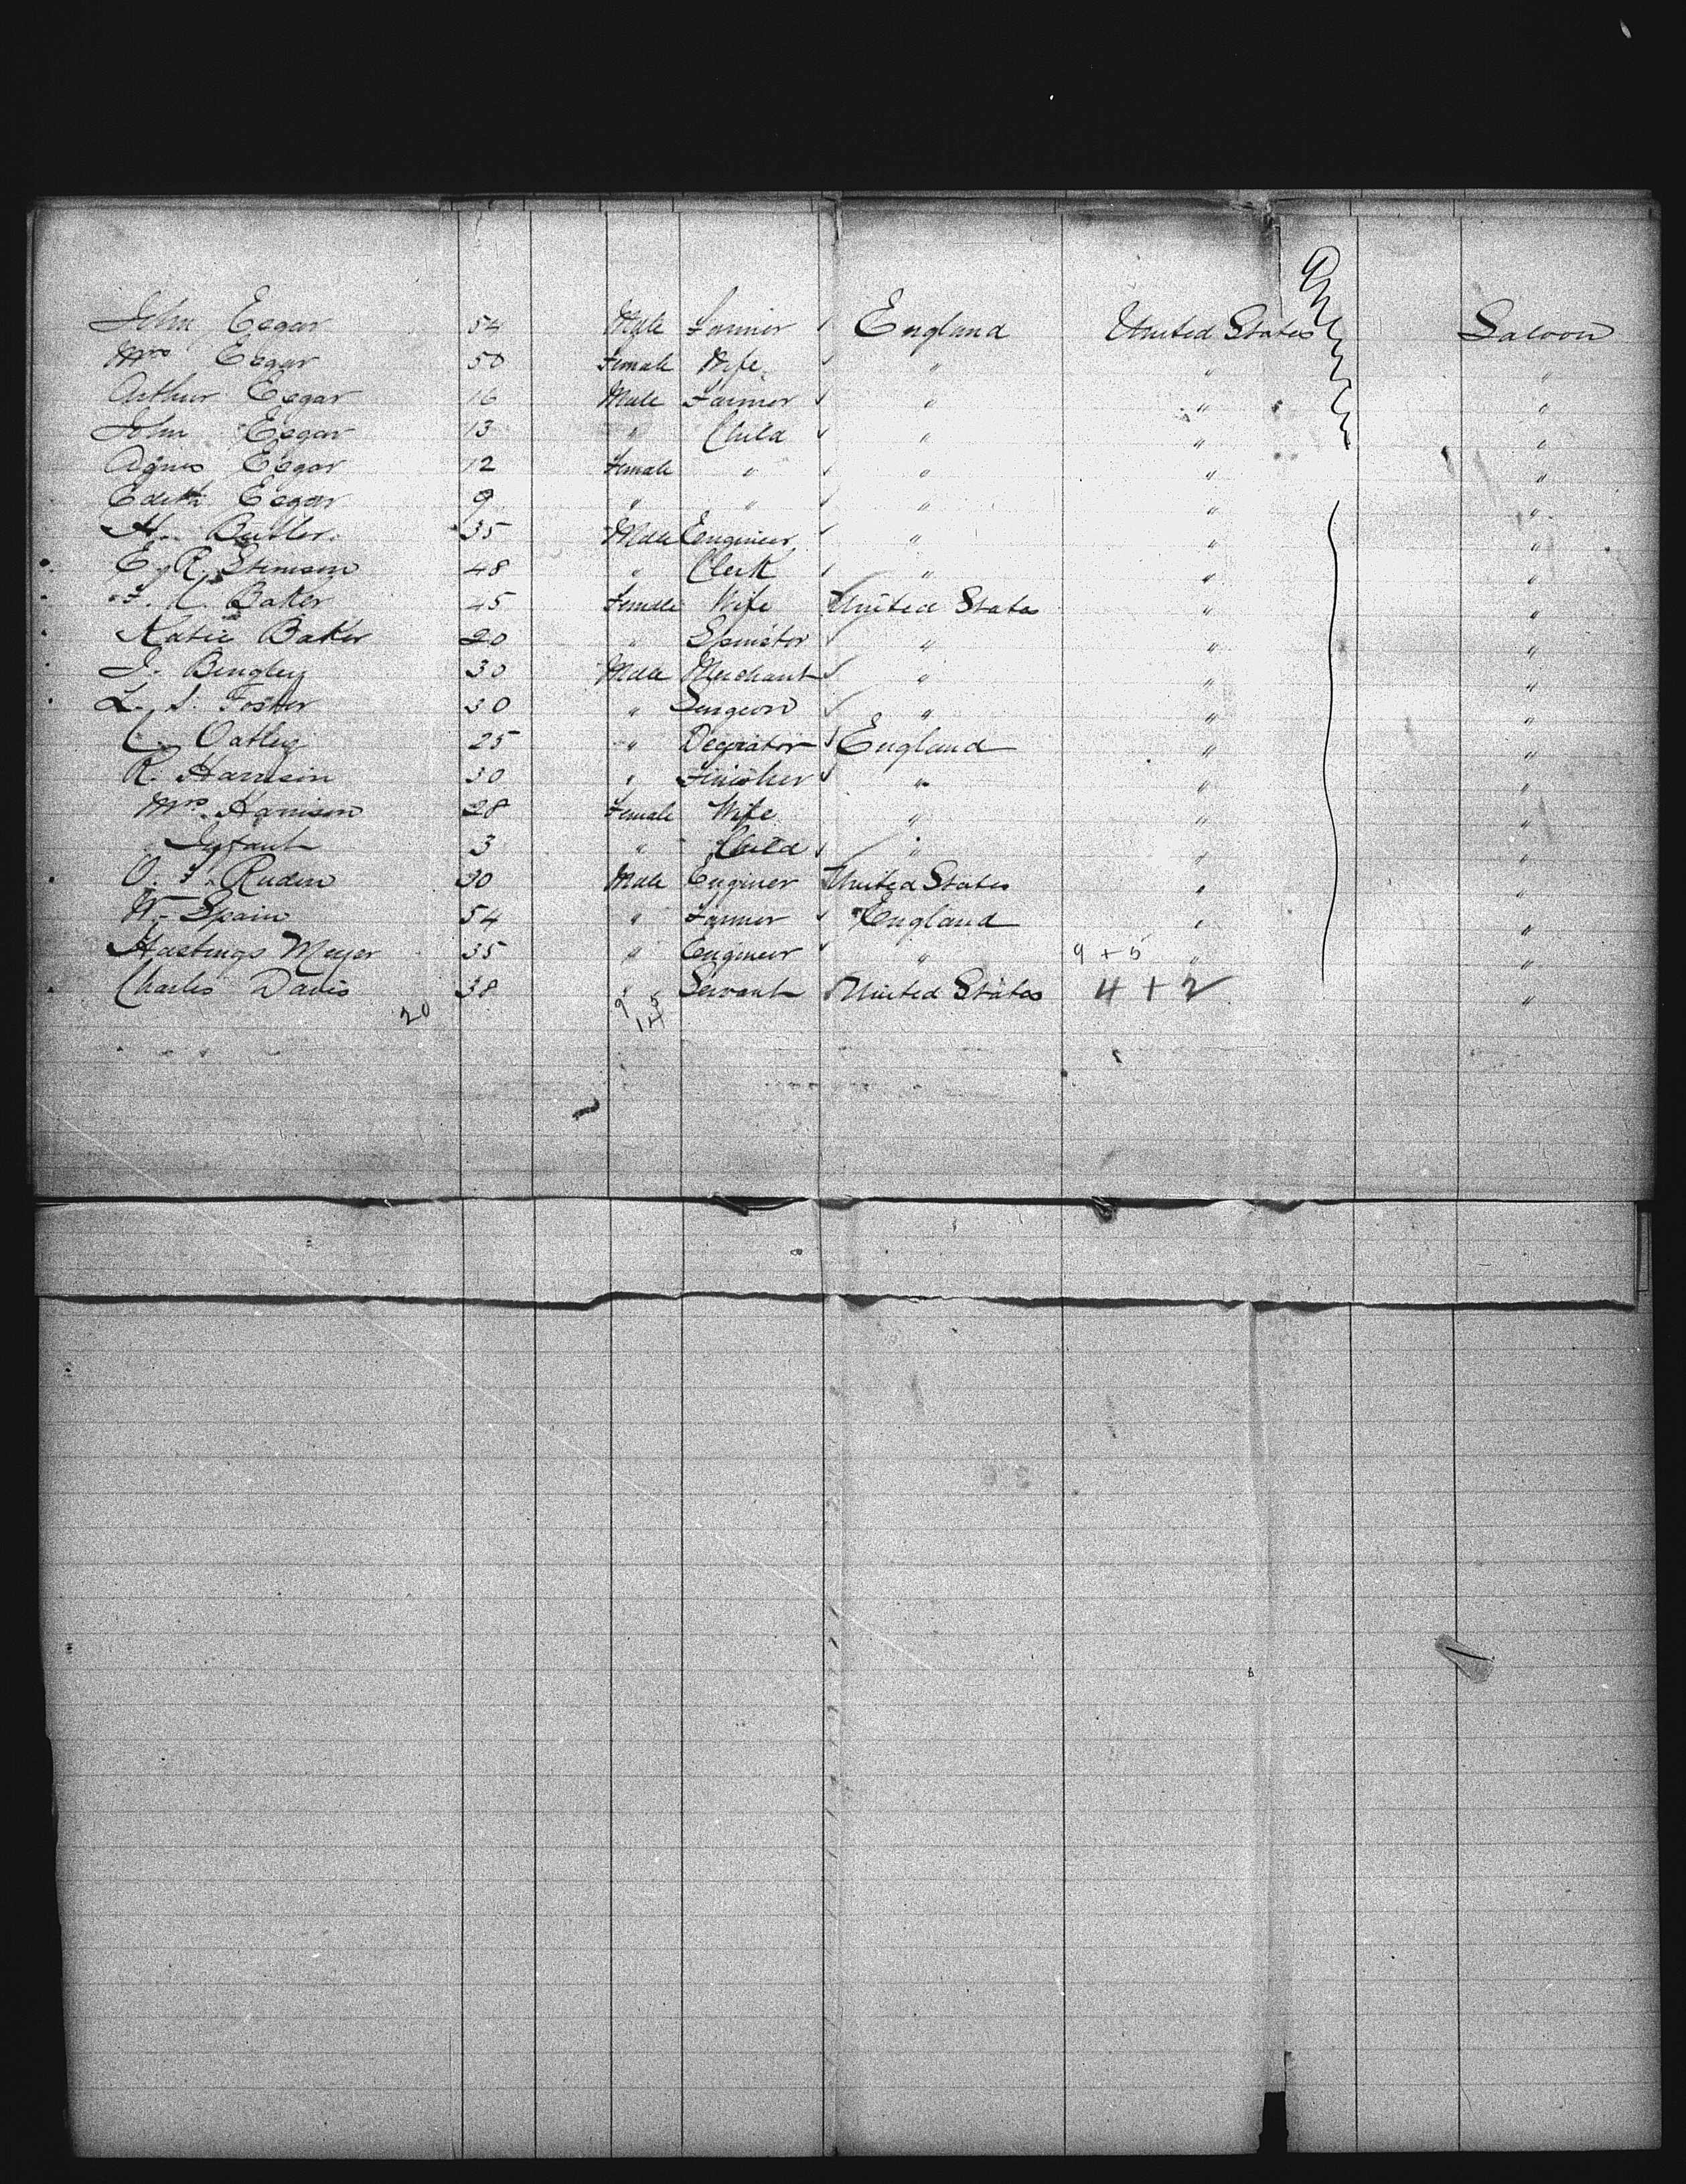 John Eggar 54 Male Farmer England United States Saloon
Mrs Eggar 50 Female Wife " " "
Arthur Eggar 16 Male Farmer " " "
John Eggar 13 " Child " " "
Agnes Eggar 12 Female " " " "
Edith Eggar 9 " " " " "
H. Butler 35 Male Engineer " " "
E. R. Stimson 48 " Clerk " " "
F. C. Baker 45 Female Wife United States " "
Katie Baker 20 " Spinster " " "
J. Bengley 30 Male Merchant " " "
L. S. Foster 30 " Surgeon " " "
C. Oatley 25 " Decorator England " "
R. Harrison 30 " Finisher " " "
Mrs. Harrison 28 Female Wife " " "
" Infant 3 " Child " " "
O. F. Ruden 30 Male Enginer United States " "
W. Spain 54 " Farmer England " "
Hastings Meyer 35 " Engineer " 9 + 5 " "
Charles Davis 38 " Servant United States 4 + 2 "
20 9 5
14